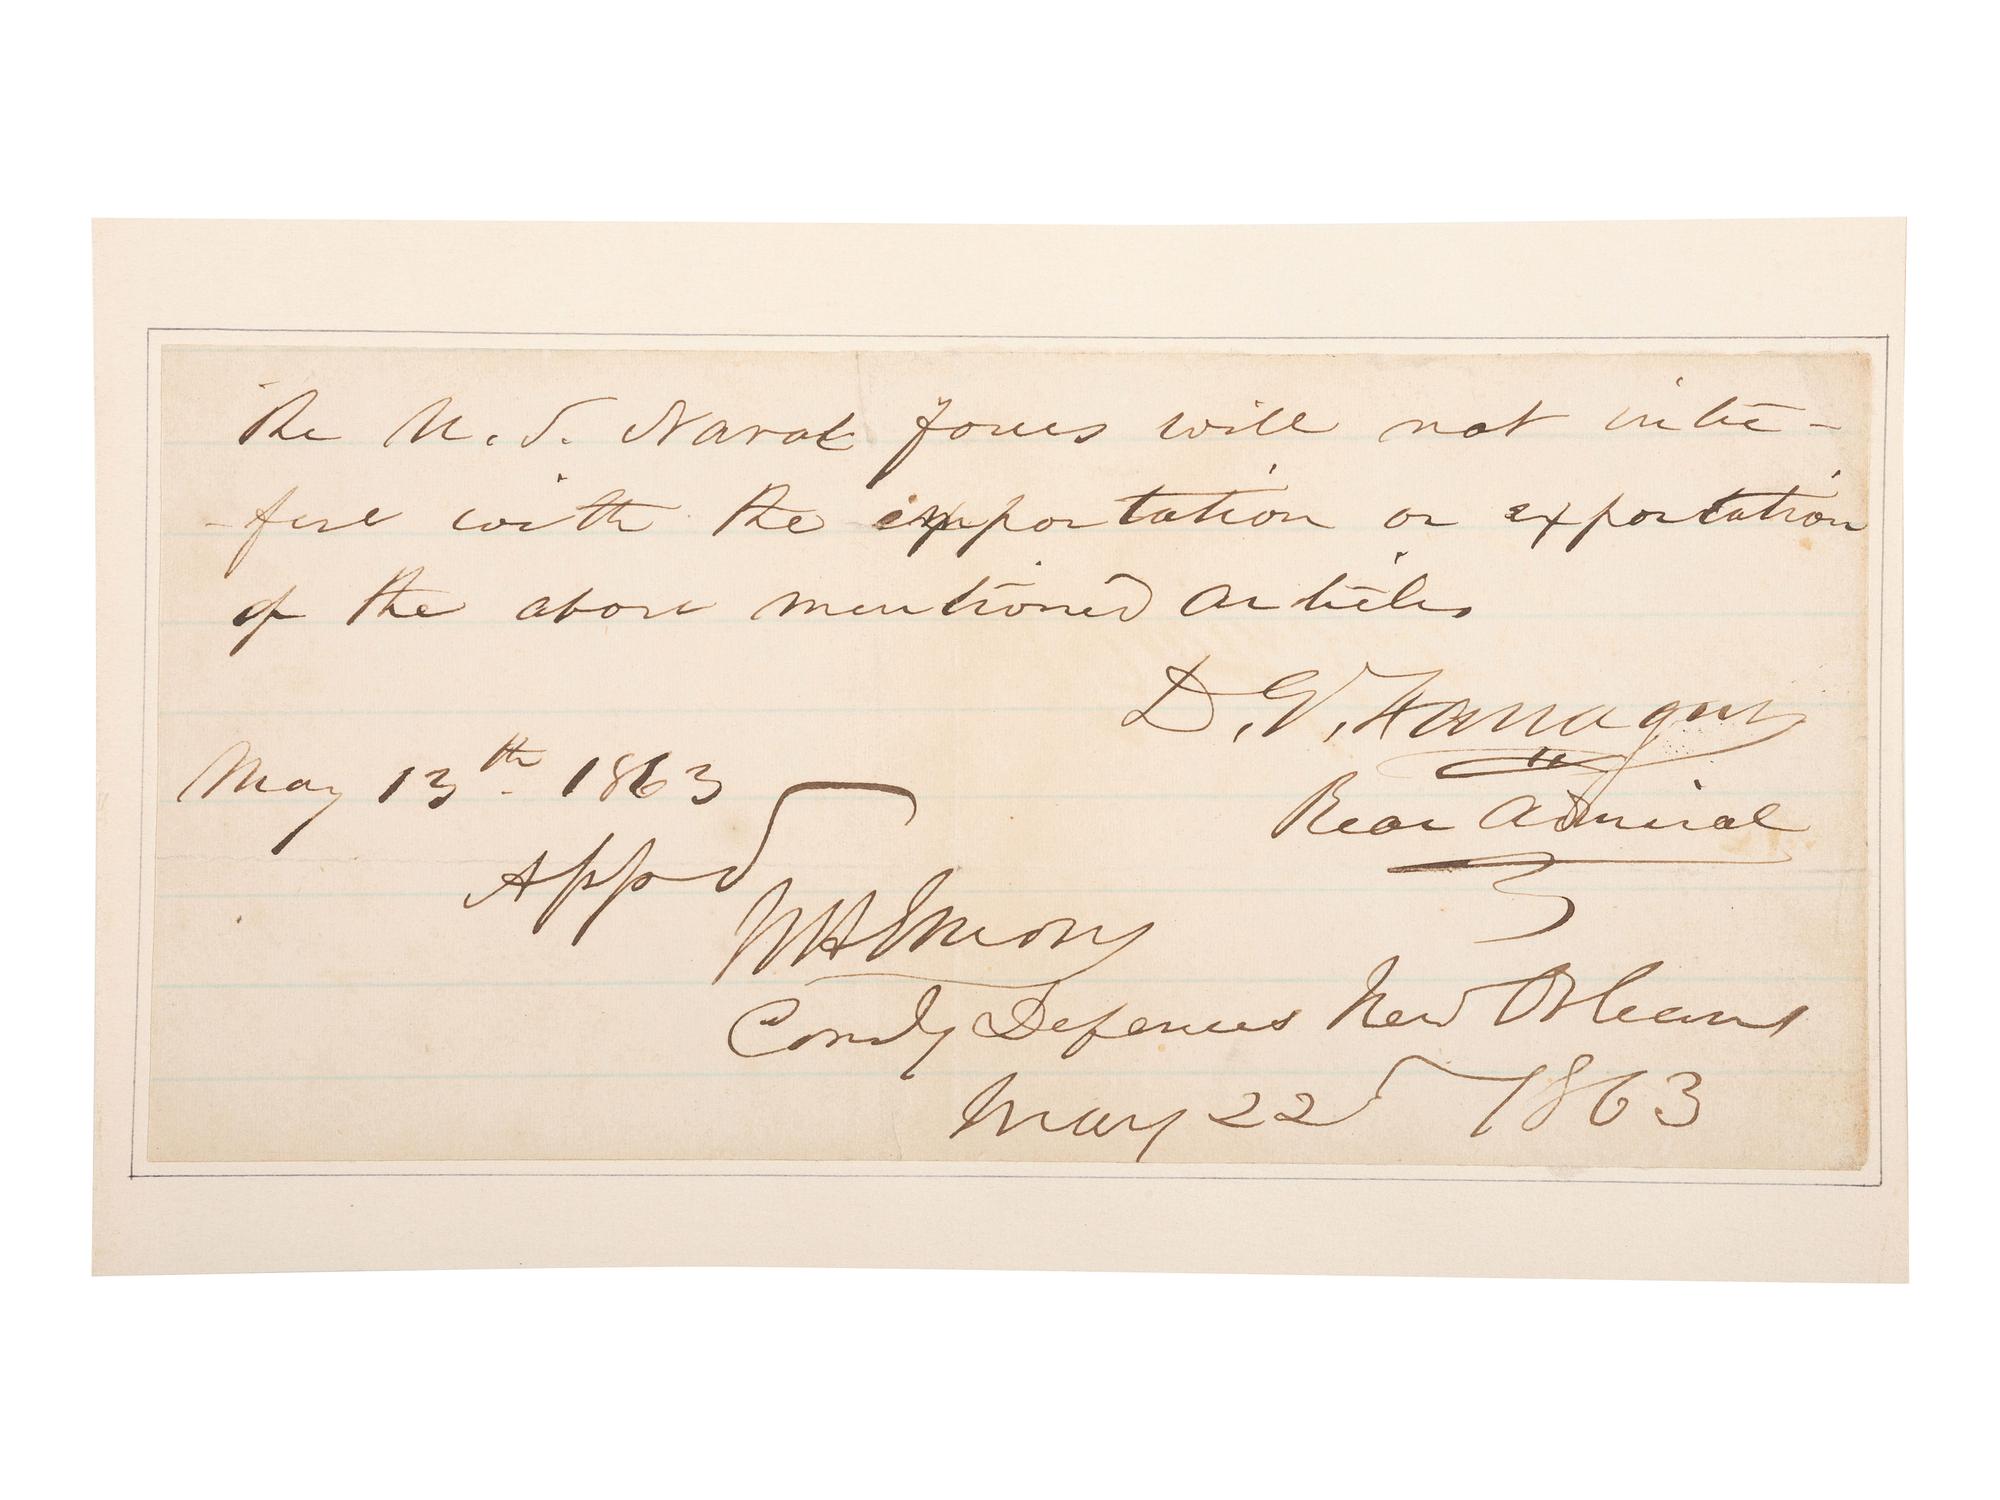 The U.S. Naval forces will not inter-
-fere with the importation or exportation
of the above mentioned articles
D. G. Farragut
Rear Admiral
May 13th 1863
Appd
W H Emory
Comdg Defences New Orleans
May 22d 1863